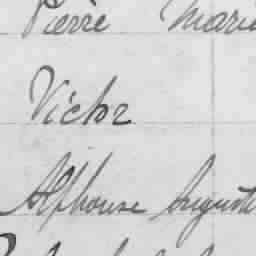 Pierre Marie
Victor
Alphonse Auguste